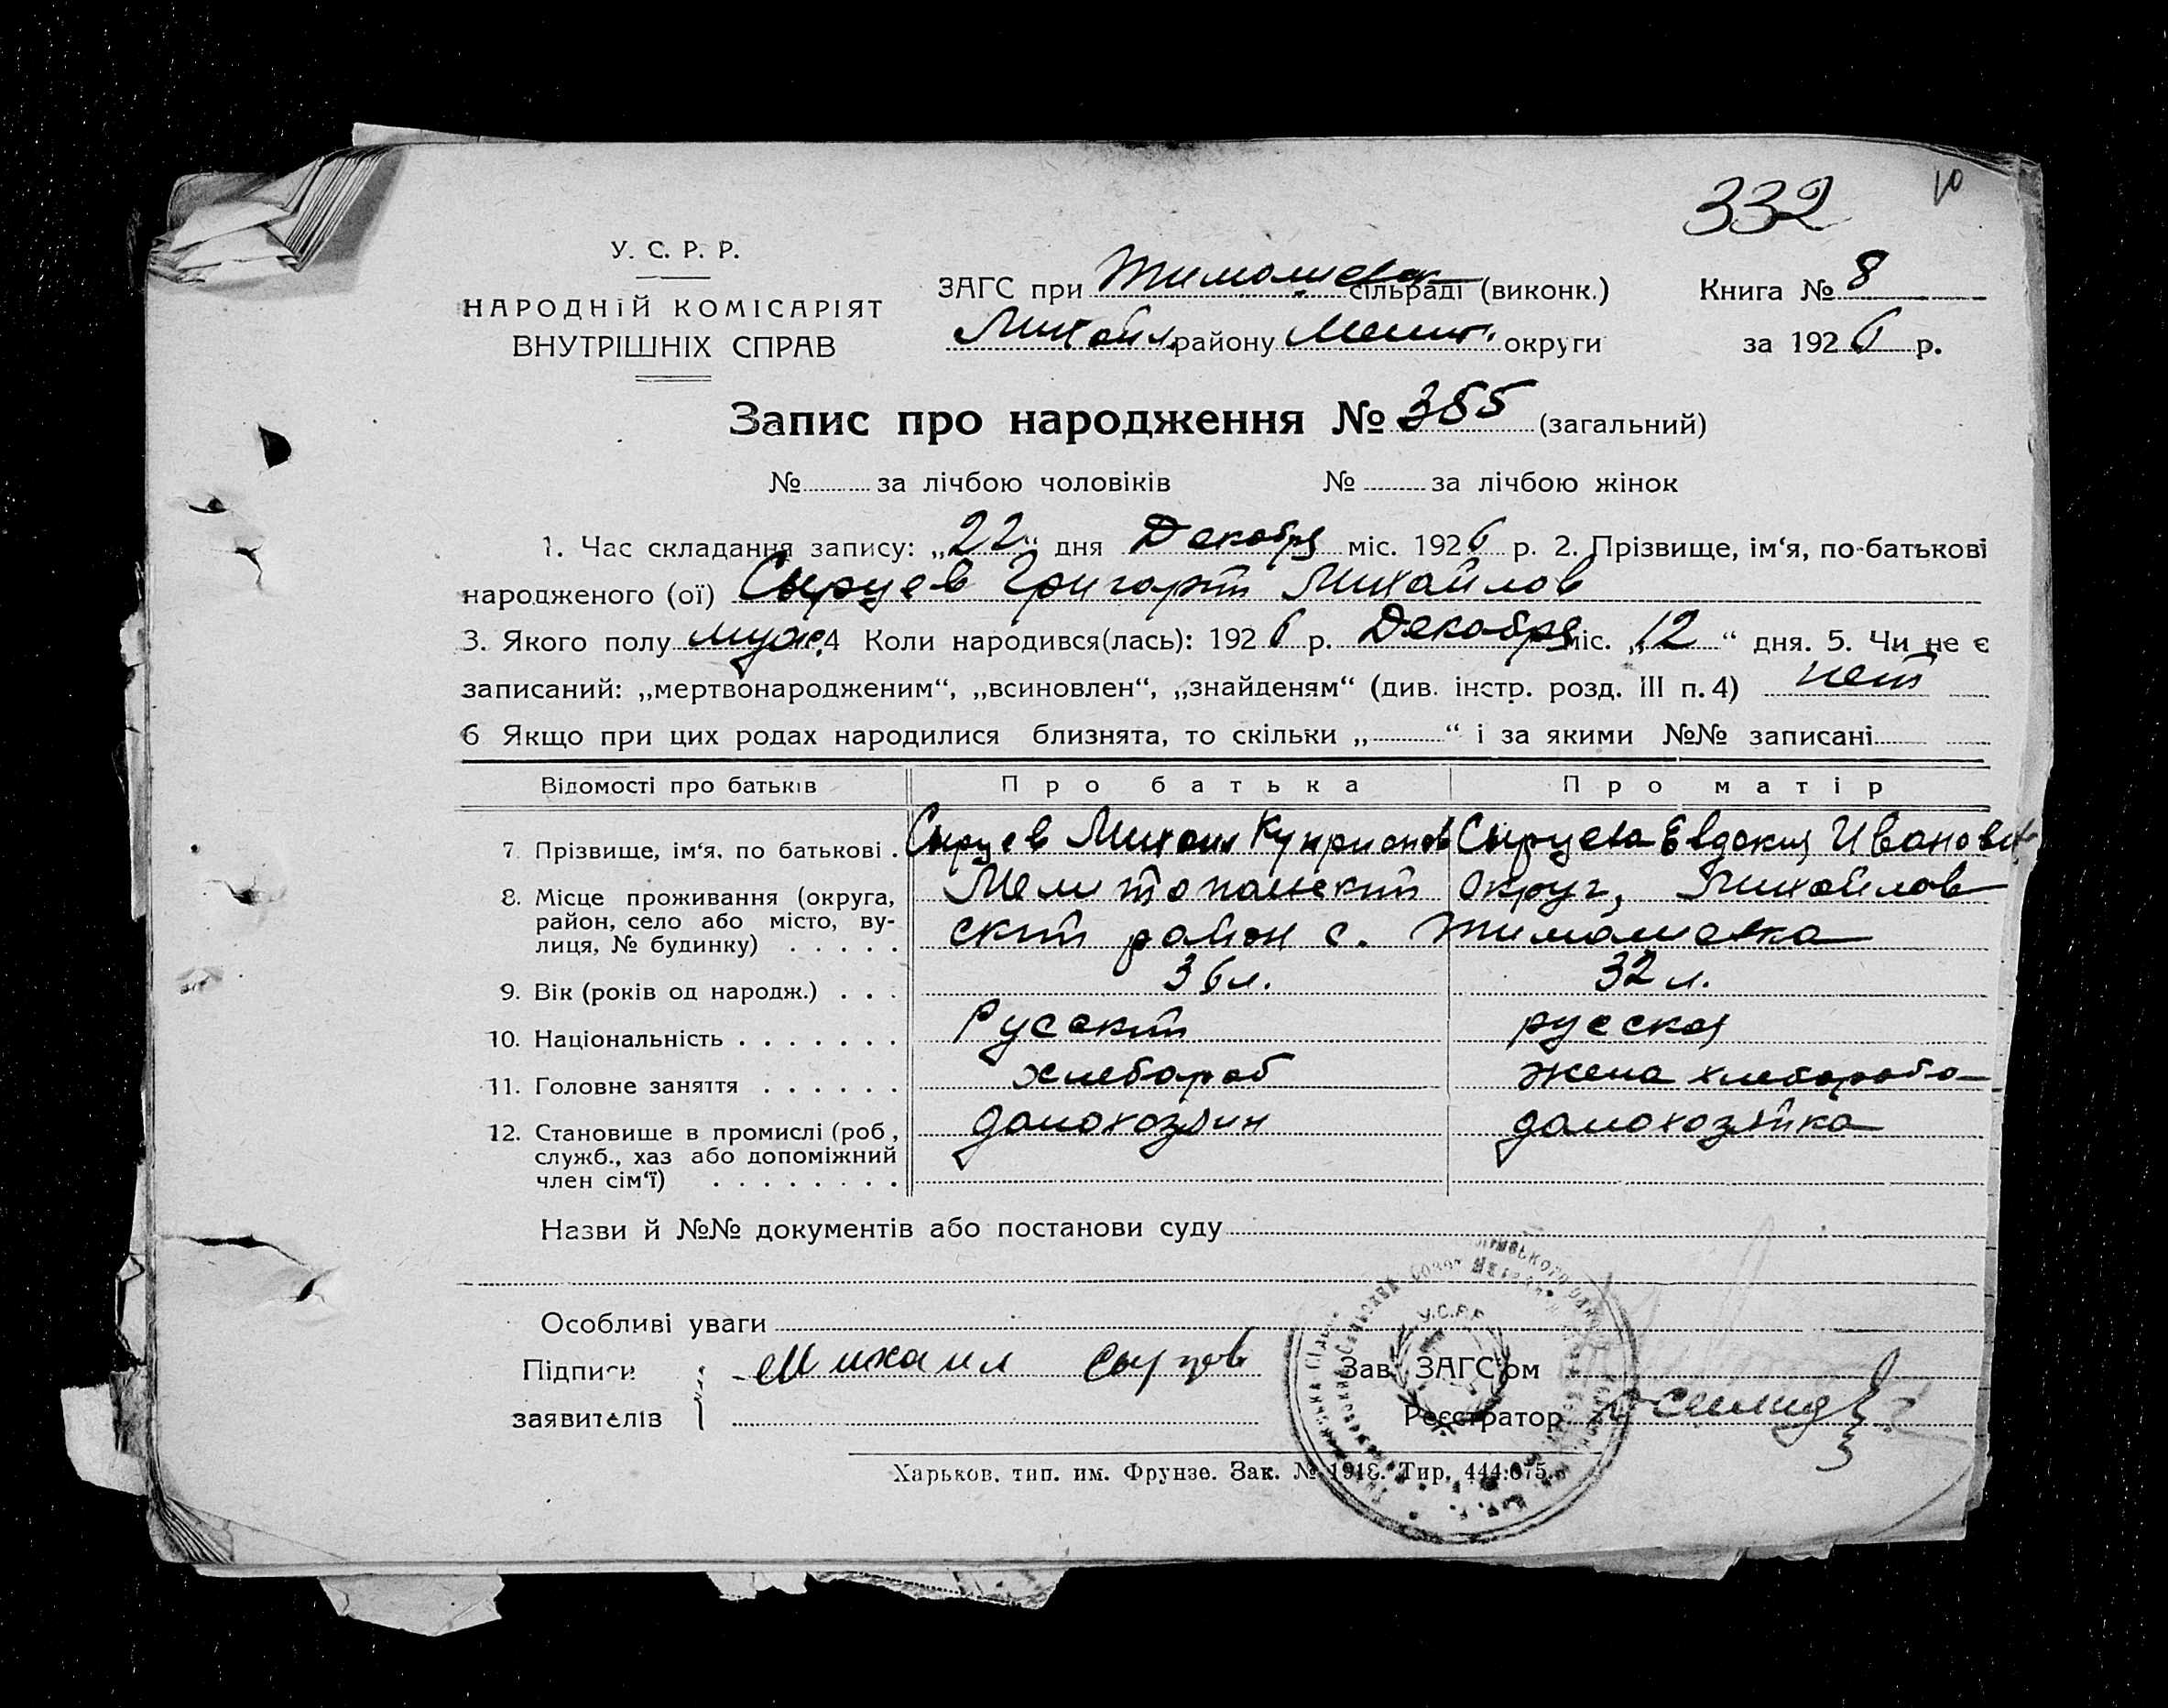 332 10
У. С. Р. Р.
НАРОДНІЙ КОМІСАРІЯТ
ВНУТРІШНІХ СПРАВ
ЗАГС при Тимошевск сільраді (виконк.)
Михайл. району Мелит. округи
Книга № 8
за 1926 р.
Запис про народження № 385 (загальний)
№ за лічбою чоловіків № за лічбою жінок
1. Час складання запису: „22“ дня Декабря міс. 1926 р. 2. Прізвище, ім‘я, по-батькові
народженого (ої) Сырцев Григорій Михайлов
3. Якого полу муж. 4 Коли народився(лась): 1926 р. Декабря міс. „12“ дня. 5. Чи не є
записаний: „мертвонародженим“, „всиновлен“, „знайденям“ (див. інстр. розд. III п. 4) нет
6 Якщо при цих родах народилися близнята, то скільки „ “ і за якими №№ записані
Відомості про батьків Про батька Про матір
7. Прізвище, ім‘я, по батькові . Сырцев Михаил Куприянов Сырцева Евдокия Ивановна
8. Місце проживання (округа, Мелитопольский округ, Михайлов
район, село або місто, ву-
лиця, № будинку) . . . . . ский район с. Тимошевка
9. Вік (років од народж.) . . . 36 л. 32 л.
10. Національність . . . . . . . Русский русская
11. Головне заняття . . . . . . хлебороб жена хлебороба
12. Становище в промислі (роб., домохозяин домохозяйка
служб., хаз або допоміжний
член сім‘ї) . . . . . . . .
Назви й №№ документів або постанови суду
Особливі уваги
Підписи Михаил Сырцов Зав. ЗАГС‘ом
заявителів Реєстратор
У.С.Р.Р.
Харьков. тип. им. Фрунзе. Зак. № 1918. Тир. 444.675.